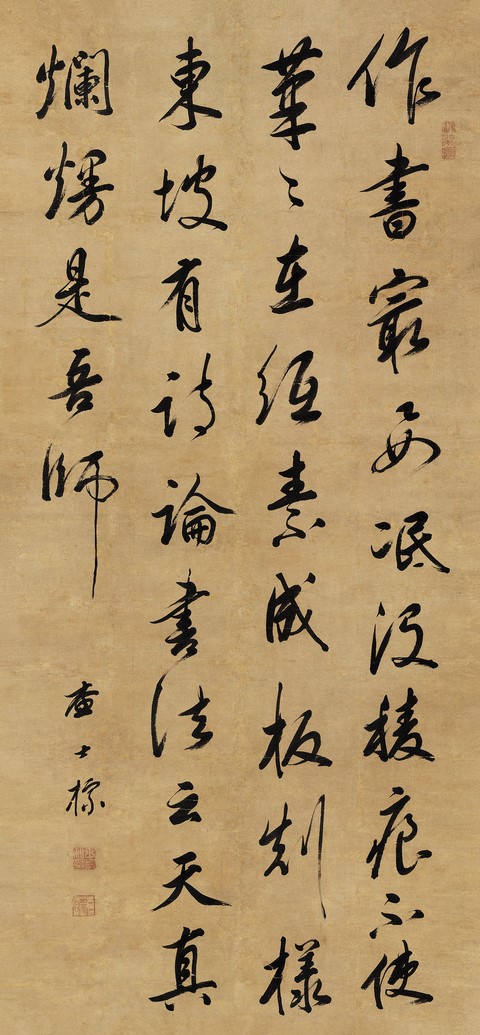 作書最要泯沒稜痕不使
筆〻在紙素成板刻樣
東坡有詩論書法云天真
爛熳是吾師
查士標